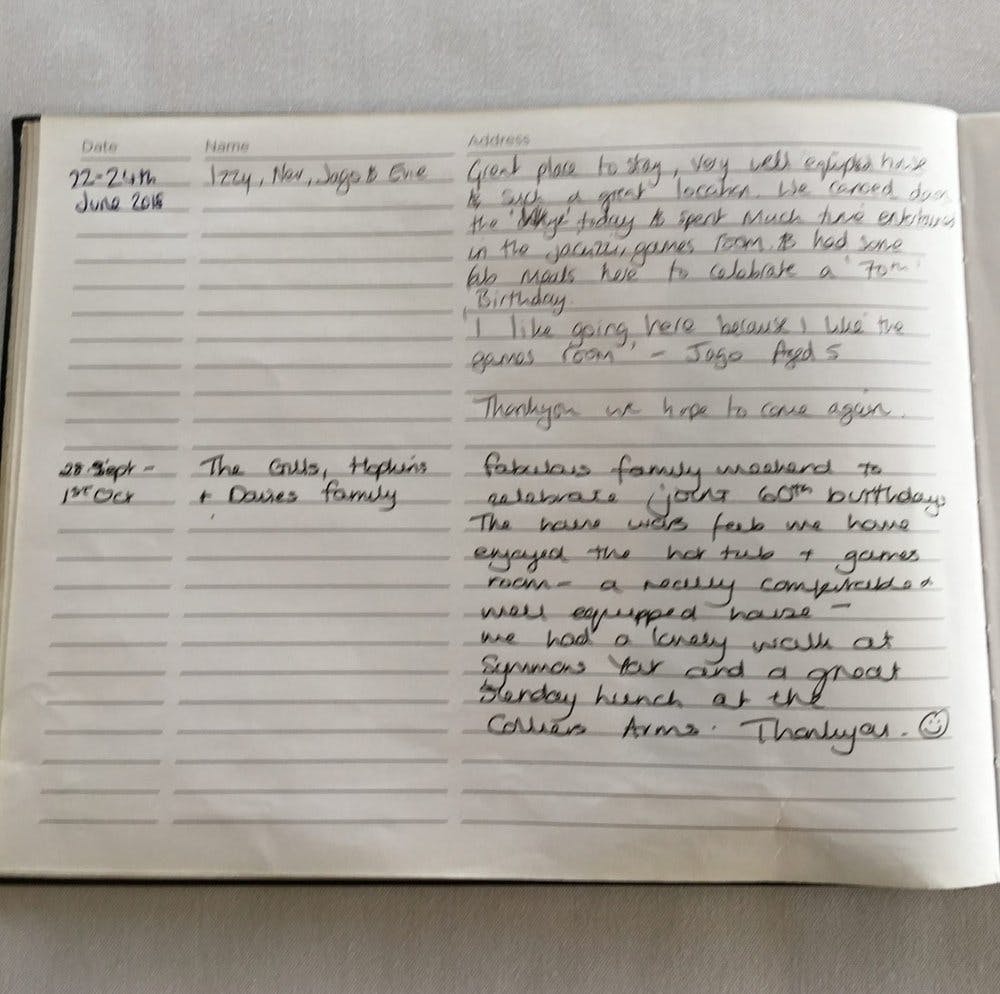 Date Name Address
22-24th Izzy, Nev, Jago & Evie Great place to stay, very well equipped house
June 2018 & such a great location. We canoed down
the 'Wye' today & spent much time
in the jacuzzi, games room & had some
fab meals here to celebrate a '70th'
Birthday.
'I like going here because I like the
games room' - Jago Aged 5
Thankyou we hope to come again.
28 Sept - The Gills, Hopkins fabulous family weekend to
1st Oct + Davies family celebrate joint 60th birthdays
The house was fab we have
enjoyed the hot tub + games
room - a really comfortable +
well equipped house -
we had a lovely walk at
Symmons Yat and a great
Sunday lunch at the
Colliers Arms. Thankyou. ☺